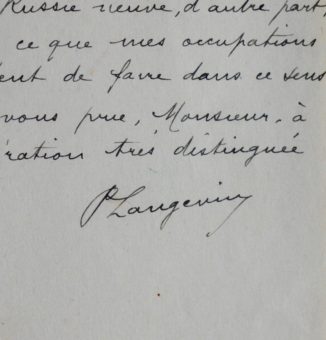 Russie neuve, d'autre part,
ce que mes occupations
ent de faire dans ce sens
vous prie, Monsieur, à
ration très distinguée
P Langevin